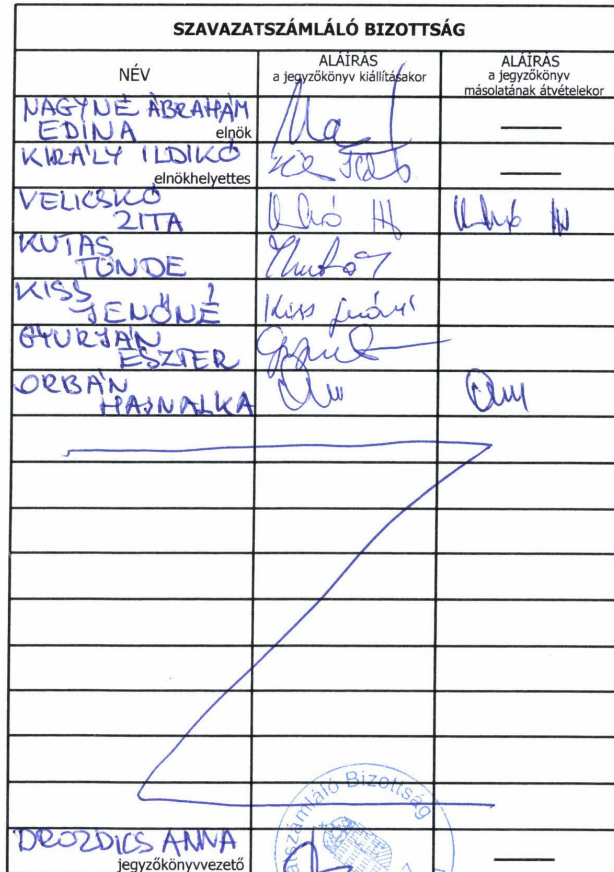 SZAVAZATSZÁMLÁLÓ BIZOTTSÁG
NÉV
ALÁÍRÁS
a jegyzőkönyv kiállításakor
ALÁÍRÁS
a jegyzőkönyv
másolatának átvételekor
NAGYNÉ ÁBRAHÁM
EDINA elnök
KIRÁLY ILDIKÓ
elnökhelyettes
VELICSKÓ
ZITA
KUTAS
TÜNDE
KISS
JENŐNÉ
Kiss Jenőné
GYURJÁN
ESZTER
ORBÁN
HAJNALKA
Bizottság
DROZDICS ANNA
jegyzőkönyvvezető